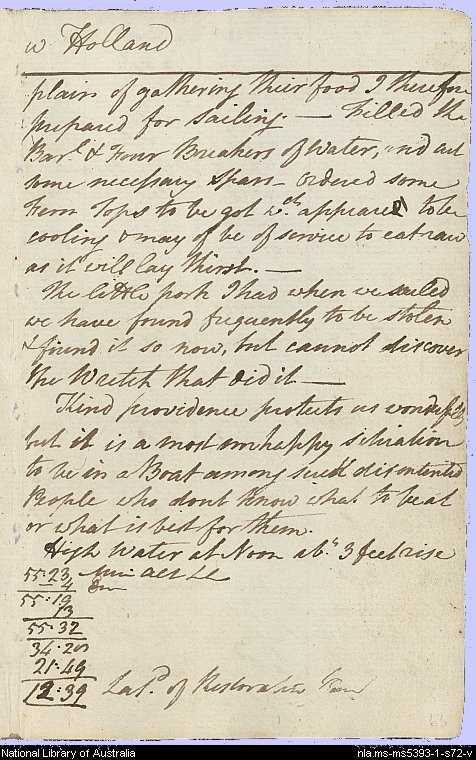 w Holland
plain of gathering their food I therefore
prepared for sailing. — Filled the
Barl. & Four Breakers of Water, and cut
some necessary spars — ordered some
Fern Tops to be got wch. appeared to be
cooling & may be of service to eat raw
as it will lay thirst. —
The little pork I had when we sailed
we have found frequently to be stolen
& found it so now, but cannot discover
the Wretch that did it —
Kind providence protects us wonderfully
but it is a most unhappy situation
to be in a Boat among such discontented
People who dont know what to be at
or what is best for them.
High Water at Noon abt. 3 feet rise
55.23 Mer Alt LL
4
55:19
13
55.32
34.28
21:49
12:39 Latd. of Restoration
National Library of Australia
nla.ms-ms5393-1-s72-v